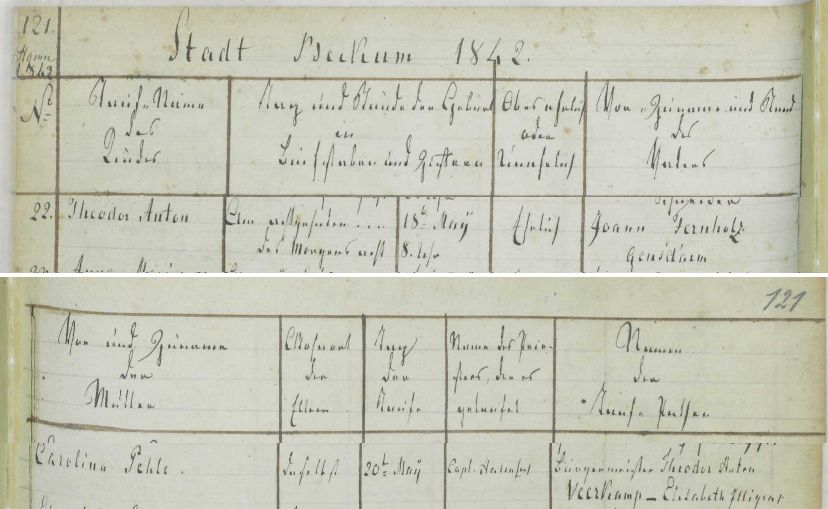 121.
1842
Stadt Beckum 1842.
No
Tauf-Name
des
Kindes
Tag und Stunde der Geburt
in
Buchstaben und Ziffern
Ob es ehelich
oder
unehelich
Vor- Zuname und Stand
des
Vaters
22.
Theodor Anton
Am achtzehnten ...
des Morgens acht
18t May
8 Uhr
Ehelich
Joann Fernholz
Gensdarm
121
Vor und Zuname
der
Mutter
Wohnort
der
Eltern
Tag
der
Taufe
Name des Prie-
sters, der es
getauft
Namen
der
Tauf-Pathen
Carolina Pehle.
daselbst
20t May
Capl.
Bürgermeister Theodor Anton
Veerkamp – Elisabeth Illigens